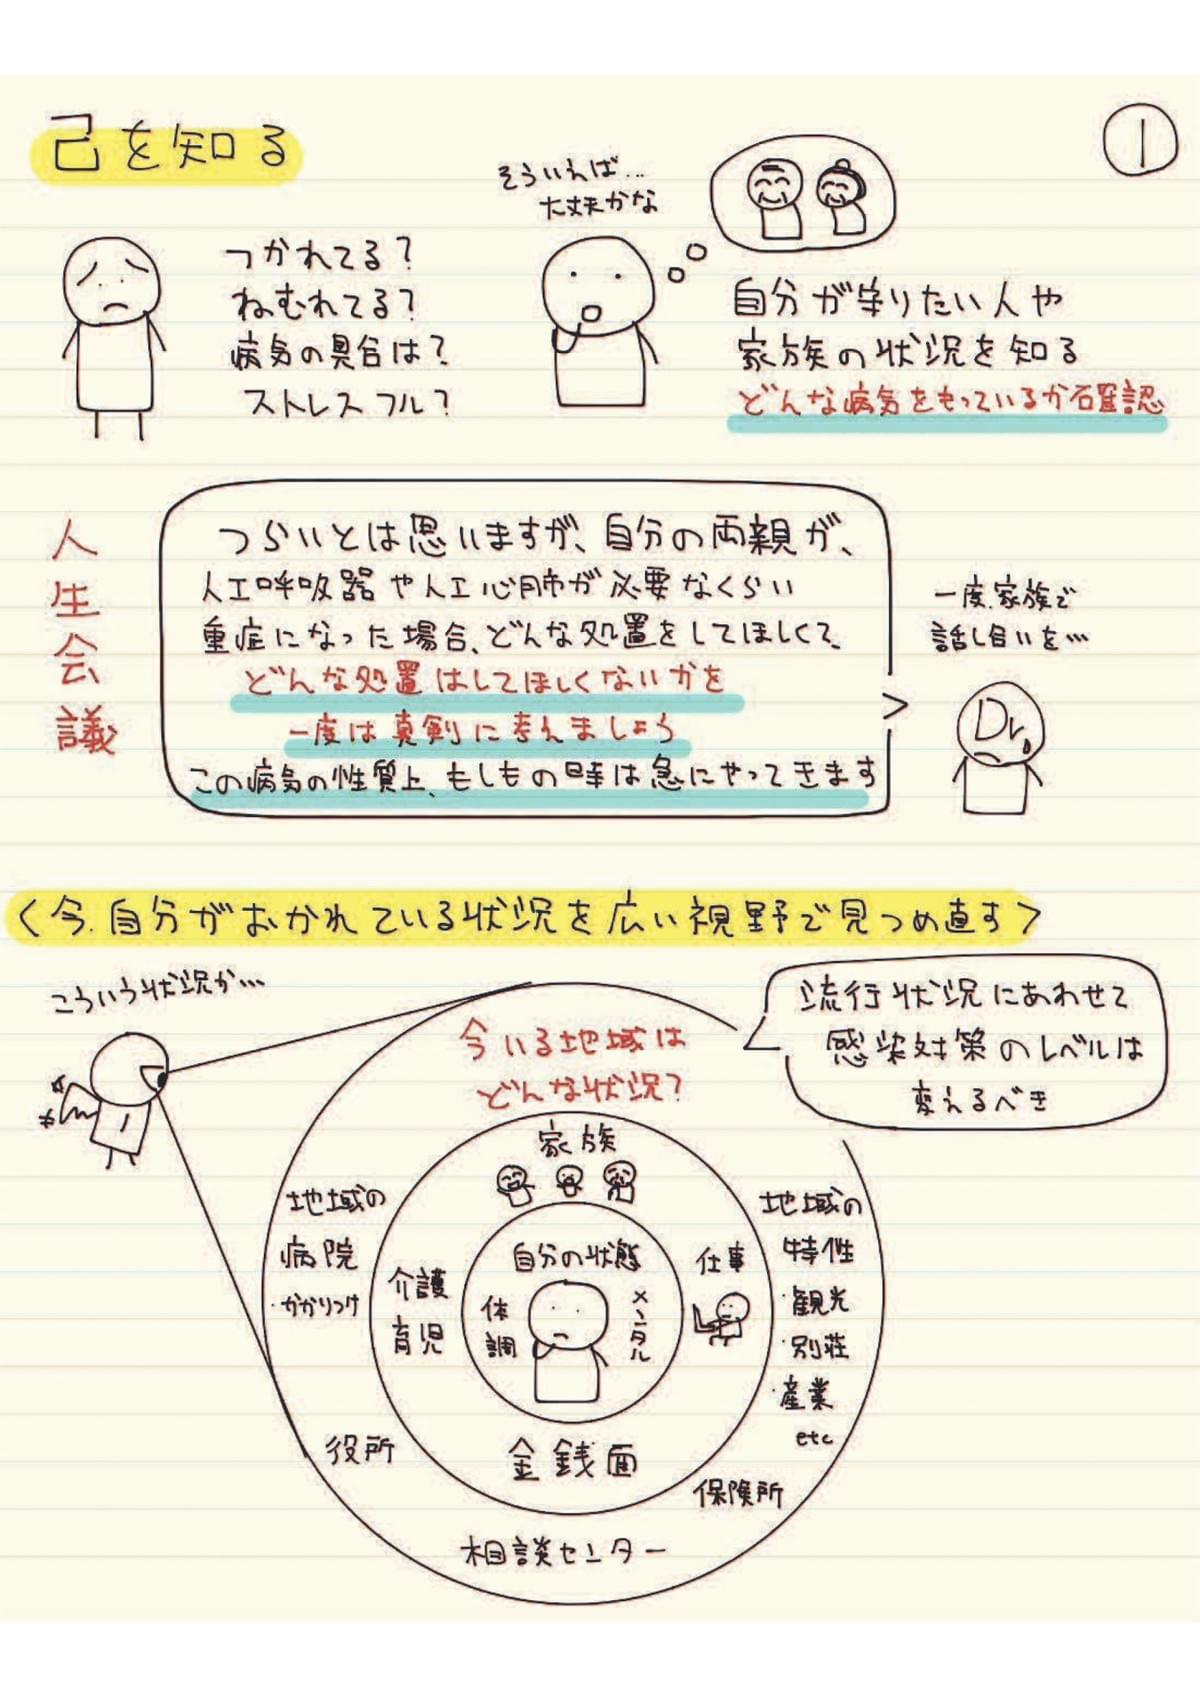 己を知る
①
つかれてる?
ねむれてる?
病気の具合は?
ストレスフル?
そういえば...
大丈夫かな
自分が守りたい人や
家族の状況を知る
どんな病気をもっているか確認
人生会議
つらいとは思いますが、自分の両親が、
人工呼吸器や人工心肺が必要なくらい
重症になった場合、どんな処置をしてほしくて、
どんな処置はしてほしくないかを
一度は真剣に考えましょう
この病気の性質上、もしもの時は急にやってきます
一度、家族で
話し合いを...
Dr.
<今、自分がおかれている状況を広い視野で見つめ直す>
こういう状況か...
流行状況にあわせて
感染対策のレベルは
変えるべき
今いる地域は
どんな状況?
家族
自分の状態
体調
メンタル
仕事
介護
育児
金銭面
地域の
病院
・かかりつけ
地域の
特性
・観光
・別荘
・産業
etc
役所
保険所
相談センター